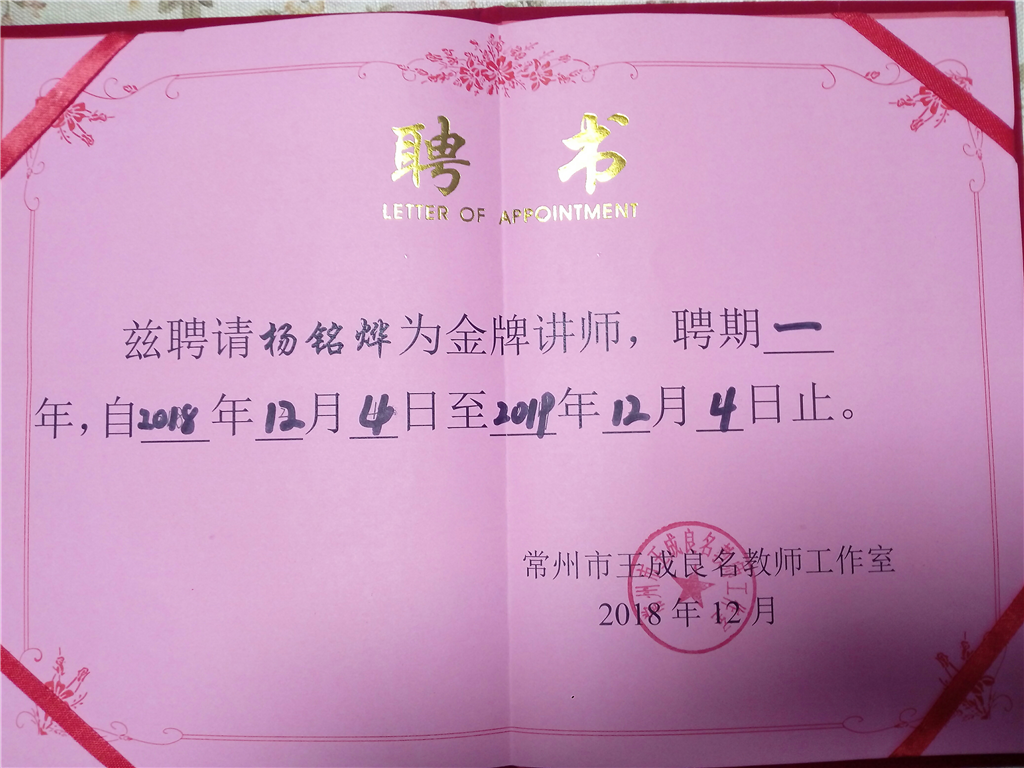 聘书
LETTER OF APPOINTMENT
兹聘请杨铭烨为金牌讲师，聘期一
年，自2018年12月4日至2019年12月4日止。
常州市王成良名教师工作室
2018年12月
常州市王成良名教师工作室